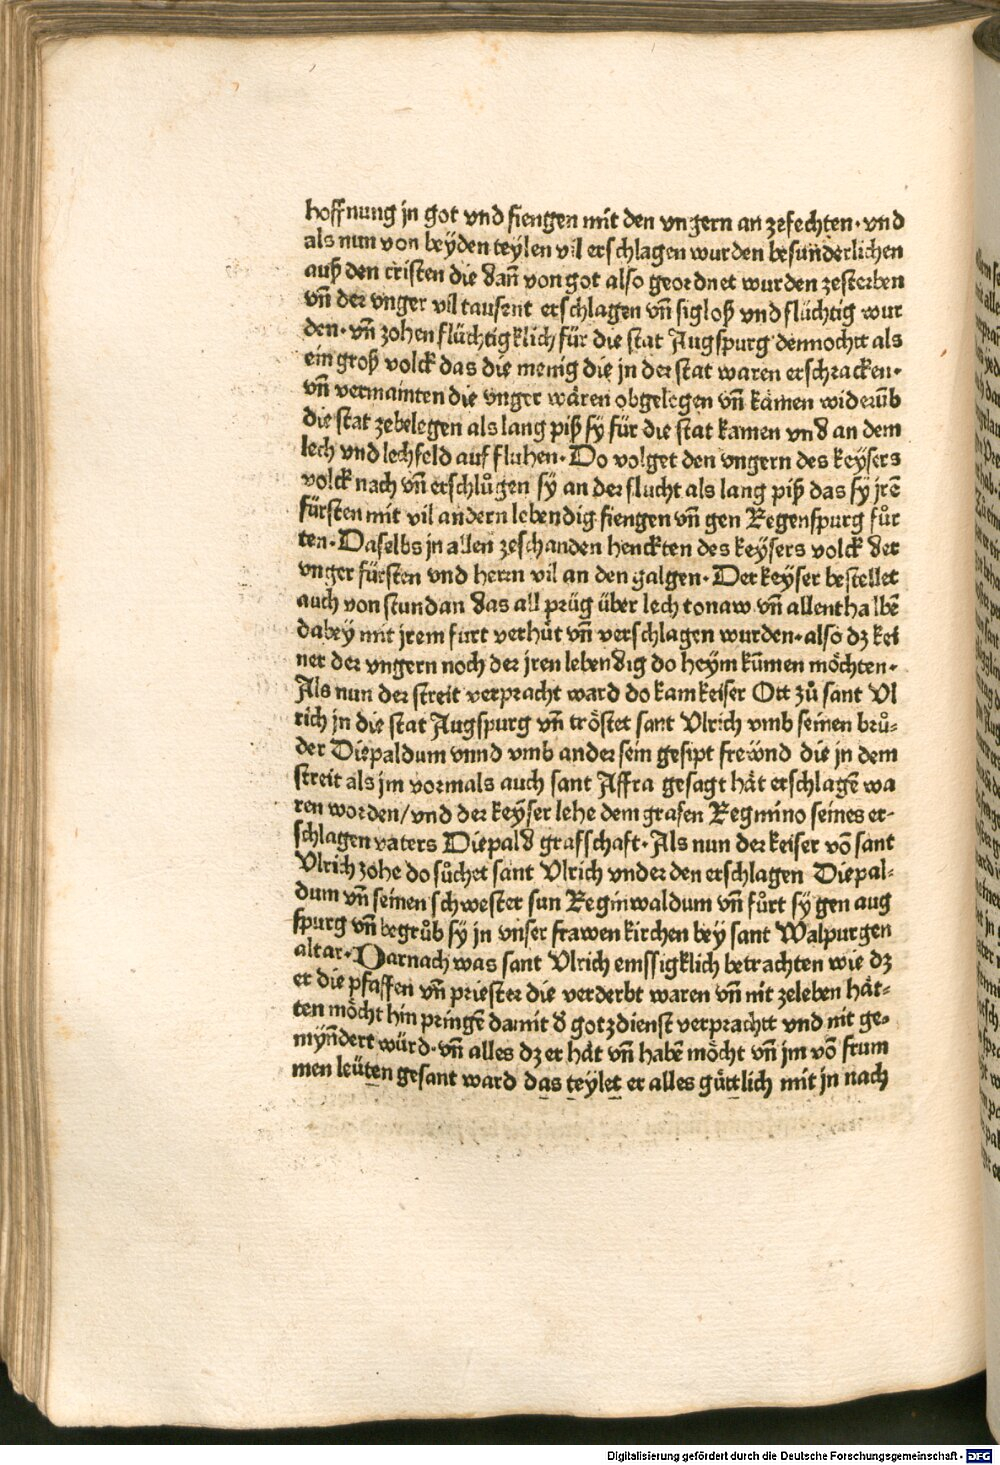 hoffnung jn got vnd fiengen mit den vngern an zefechten· vnd
als nun von beyden teylen vil erschlagen wurden besunderlichen
auß den cristen die dañ von got also geordnet wurden zesterben
vñ der vnger vil tausent erschlagen vñ sigloß vnd flüchtig wur
den· vñ zohen flüchtigklich für die stat Augspurg dennochtt als
ein groß volck das die menig die jn der stat waren erschracken·
vñ vermainten die vnger wären obgelegen vñ kämen widerūb
die stat zebelegen als lang piß sy für die stat kamen vnd an dem
lech vnd lechfeld auf fluhen· Do volget den vngern des keysers
volck nach vñ erschlůgen sy an der flucht als lang piß das sy jrē
fürsten mit vil andern lebendig fiengen vñ gen Regenspurg fůr
ten· Daselbs jn allen zeschanden henckten des keysers volck der
vnger fürsten vnd herrn vil an den galgen· Der keyser bestellet
auch von stund an das all prüg über lech tonaw vñ allenthalbē
dabey mit jrem furt verhüt vñ verschlagen wurden· also dz kei
ner der vngern noch der jren lebendig do heym kūmen möchten·
Als nun der streit verpracht ward do kam keiser Ott zů sant Vl
rich jn die stat Augspurg vñ tröstet sant Vlrich vmb seinen brů⸗
der Diepaldum vnnd vmb ander sein gesipt frewnd die jn dem
streit als jm vormals auch sant Affra gesagt hät erschlagē wa
ren worden/vnd der keyser lehe dem grafen Regmino seines er⸗
schlagen vaters Diepald grafschaft· Als nun der keiser võ sant
Vlrich zohe do sůchet sant Vlrich vnder den erschlagen Diepal⸗
dum vñ seinen schwester sun Reginwaldum vñ fůrt sy gen aug
spurg vñ begrůb sy jn vnser frawen kirchen bey sant Walpurgen
altar· Darnach was sant Vlrich emssigklich betrachten wie dz
er die pfaffen vñ priester die verderbt waren vñ nit zeleben hät⸗
ten möcht hin pringē damit d gotzdienst verprachtt vnd nit ge⸗
myñdert würd· vñ alles dz er hät vñ habē möcht vñ jm võ frum
men leüten gesant ward das teylet er alles güttlich mit jn nach
Digitalisierung gefördert durch die Deutsche Forschungsgemeinschaft - DFG